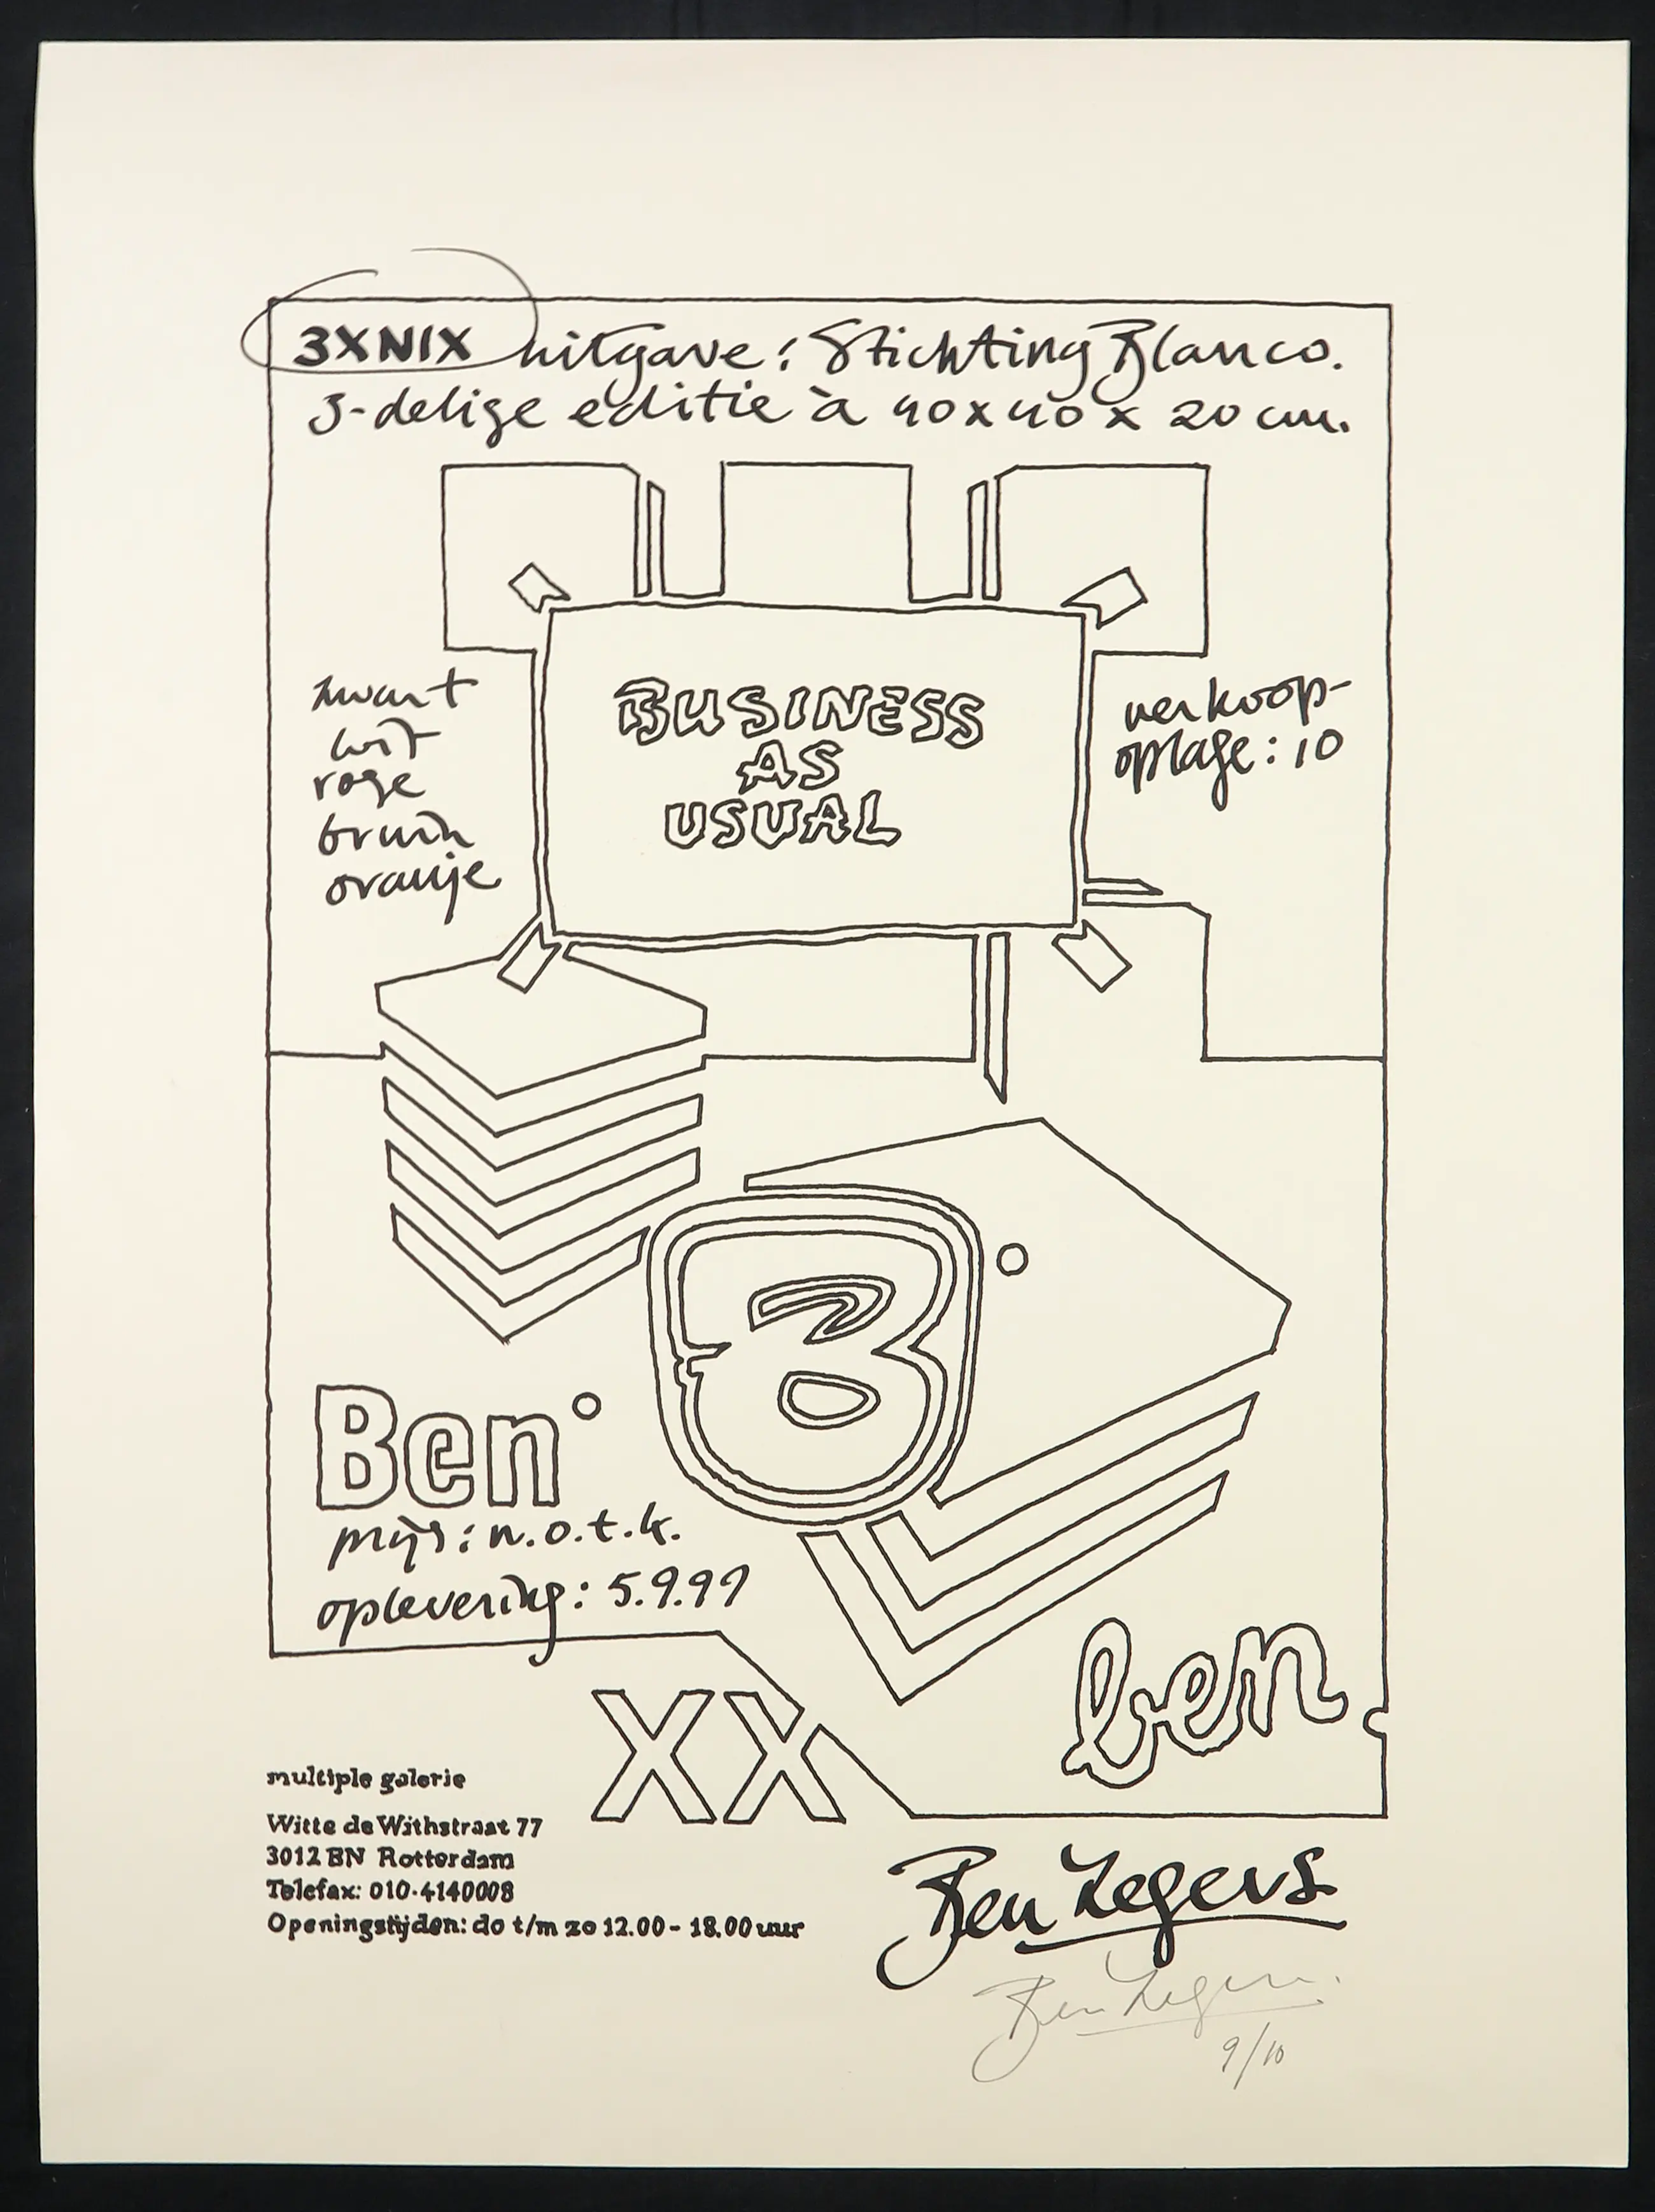 3XNIX uitgave: Stichting Blanco.
3-delige editie à 40x40 x 20 cm.
BUSINESS
AS
USUAL
zwart
wit
roze
bruin
oranje
verkoop-
oplage: 10
3
Ben
prijs: n.o.t.k.
oplevering: 5.9.99
ben
XX
multiple galerie
Witte de Withstraat 77
3012 BN Rotterdam
Telefax: 010-4140008
Openingstijden: do t/m zo 12.00 - 18.00 uur
Ben Zegers
Ben Zegers.
9/10